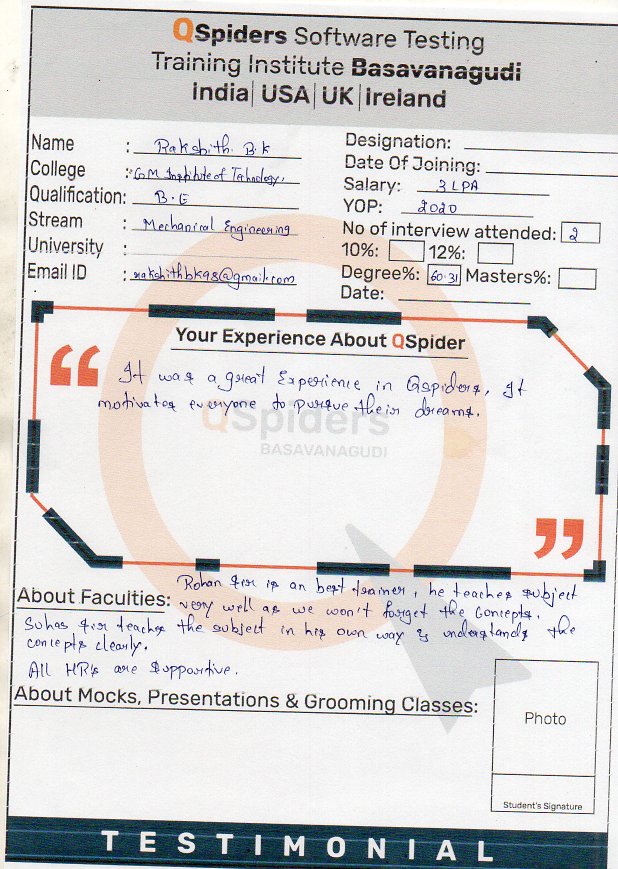 QSpiders Software Testing
Training Institute Basavanagudi
India | USA | UK | Ireland
Name : Rakshith. B.K
College : GM Institute of Technology.
Qualification: B.E
Stream : Mechanical Engineering
University :
Email ID : rakshithbk98@gmail.com
Designation:
Date Of Joining:
Salary: 3 LPA
YOP: 2020
No of interview attended: 2
10%: 12%:
Degree%: 60.31 Masters%:
Date:
Your Experience About QSpider
It was a great Experience in Qspiders, It
motivates everyone to pursue their dreams.
QSpiders
BASAVANAGUDI
Rohan sir is an best trainer, he teaches subject
About Faculties: very well as we won't forget the concepts.
Suhas sir teaches the subject in his own way & understands the
concepts clearly.
All HR's are supportive.
About Mocks, Presentations & Grooming Classes:
Photo
Student's Signature
TESTIMONIAL